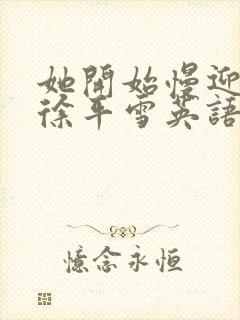 她開始慢迎
徐平雪英語
憶念永恒